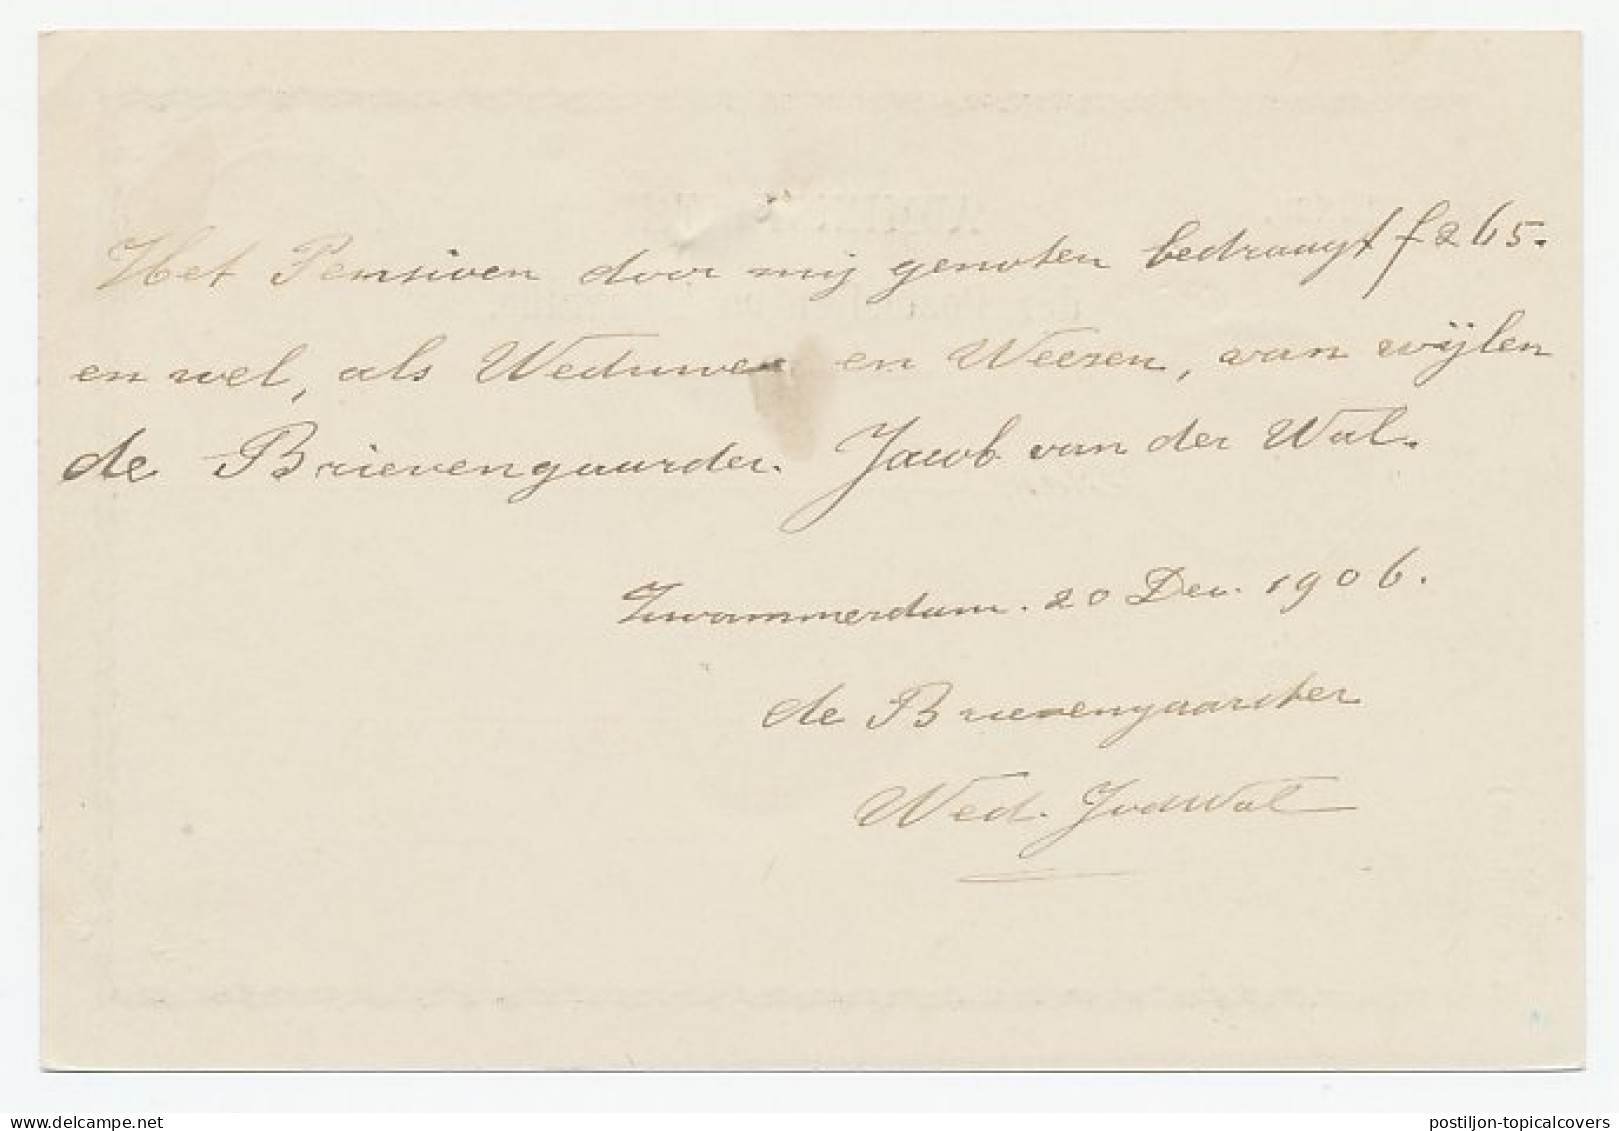 Het Pensioen door mij genoten bedraagt f 265.
en wel, als Weduwe en Weezen, van wijlen
de Brievengaarder. Jacob van der Wal.
Zwammerdam. 20 Dec. 1906.
de Brievengaarster
Wed. JvdWal
postiljon-topicalcovers